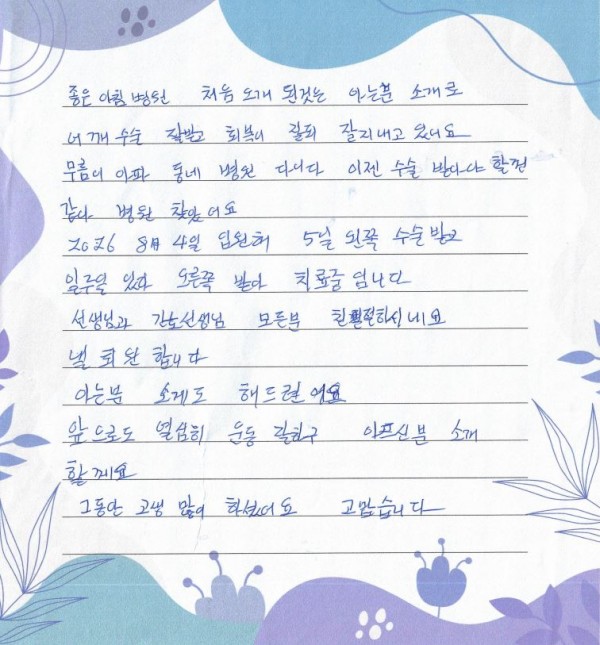 좋은 아침 병원 처음 소개 된것는 아는분 소개로
어깨 수술 잘받고 회복이 잘되 잘지내고 있어요
무릎이 아파 동네 병원 다니다 이젠 수술 받다야 할껀
같다 병원 찾았어요
2026 8月 4일 입원해 5일 왼쪽 수술 받고
일주일 있다 오른쪽 받다 치료중 임니다
선생님과 간호선생님 모든분 친절하시네요
낼 퇴원 합니다
아는분 소게도 해드련어요
앞으로도 열심히 운동 잘하구 아프신분 소개
할께요
그동안 고생 많이 하셨어요 고맙습니다